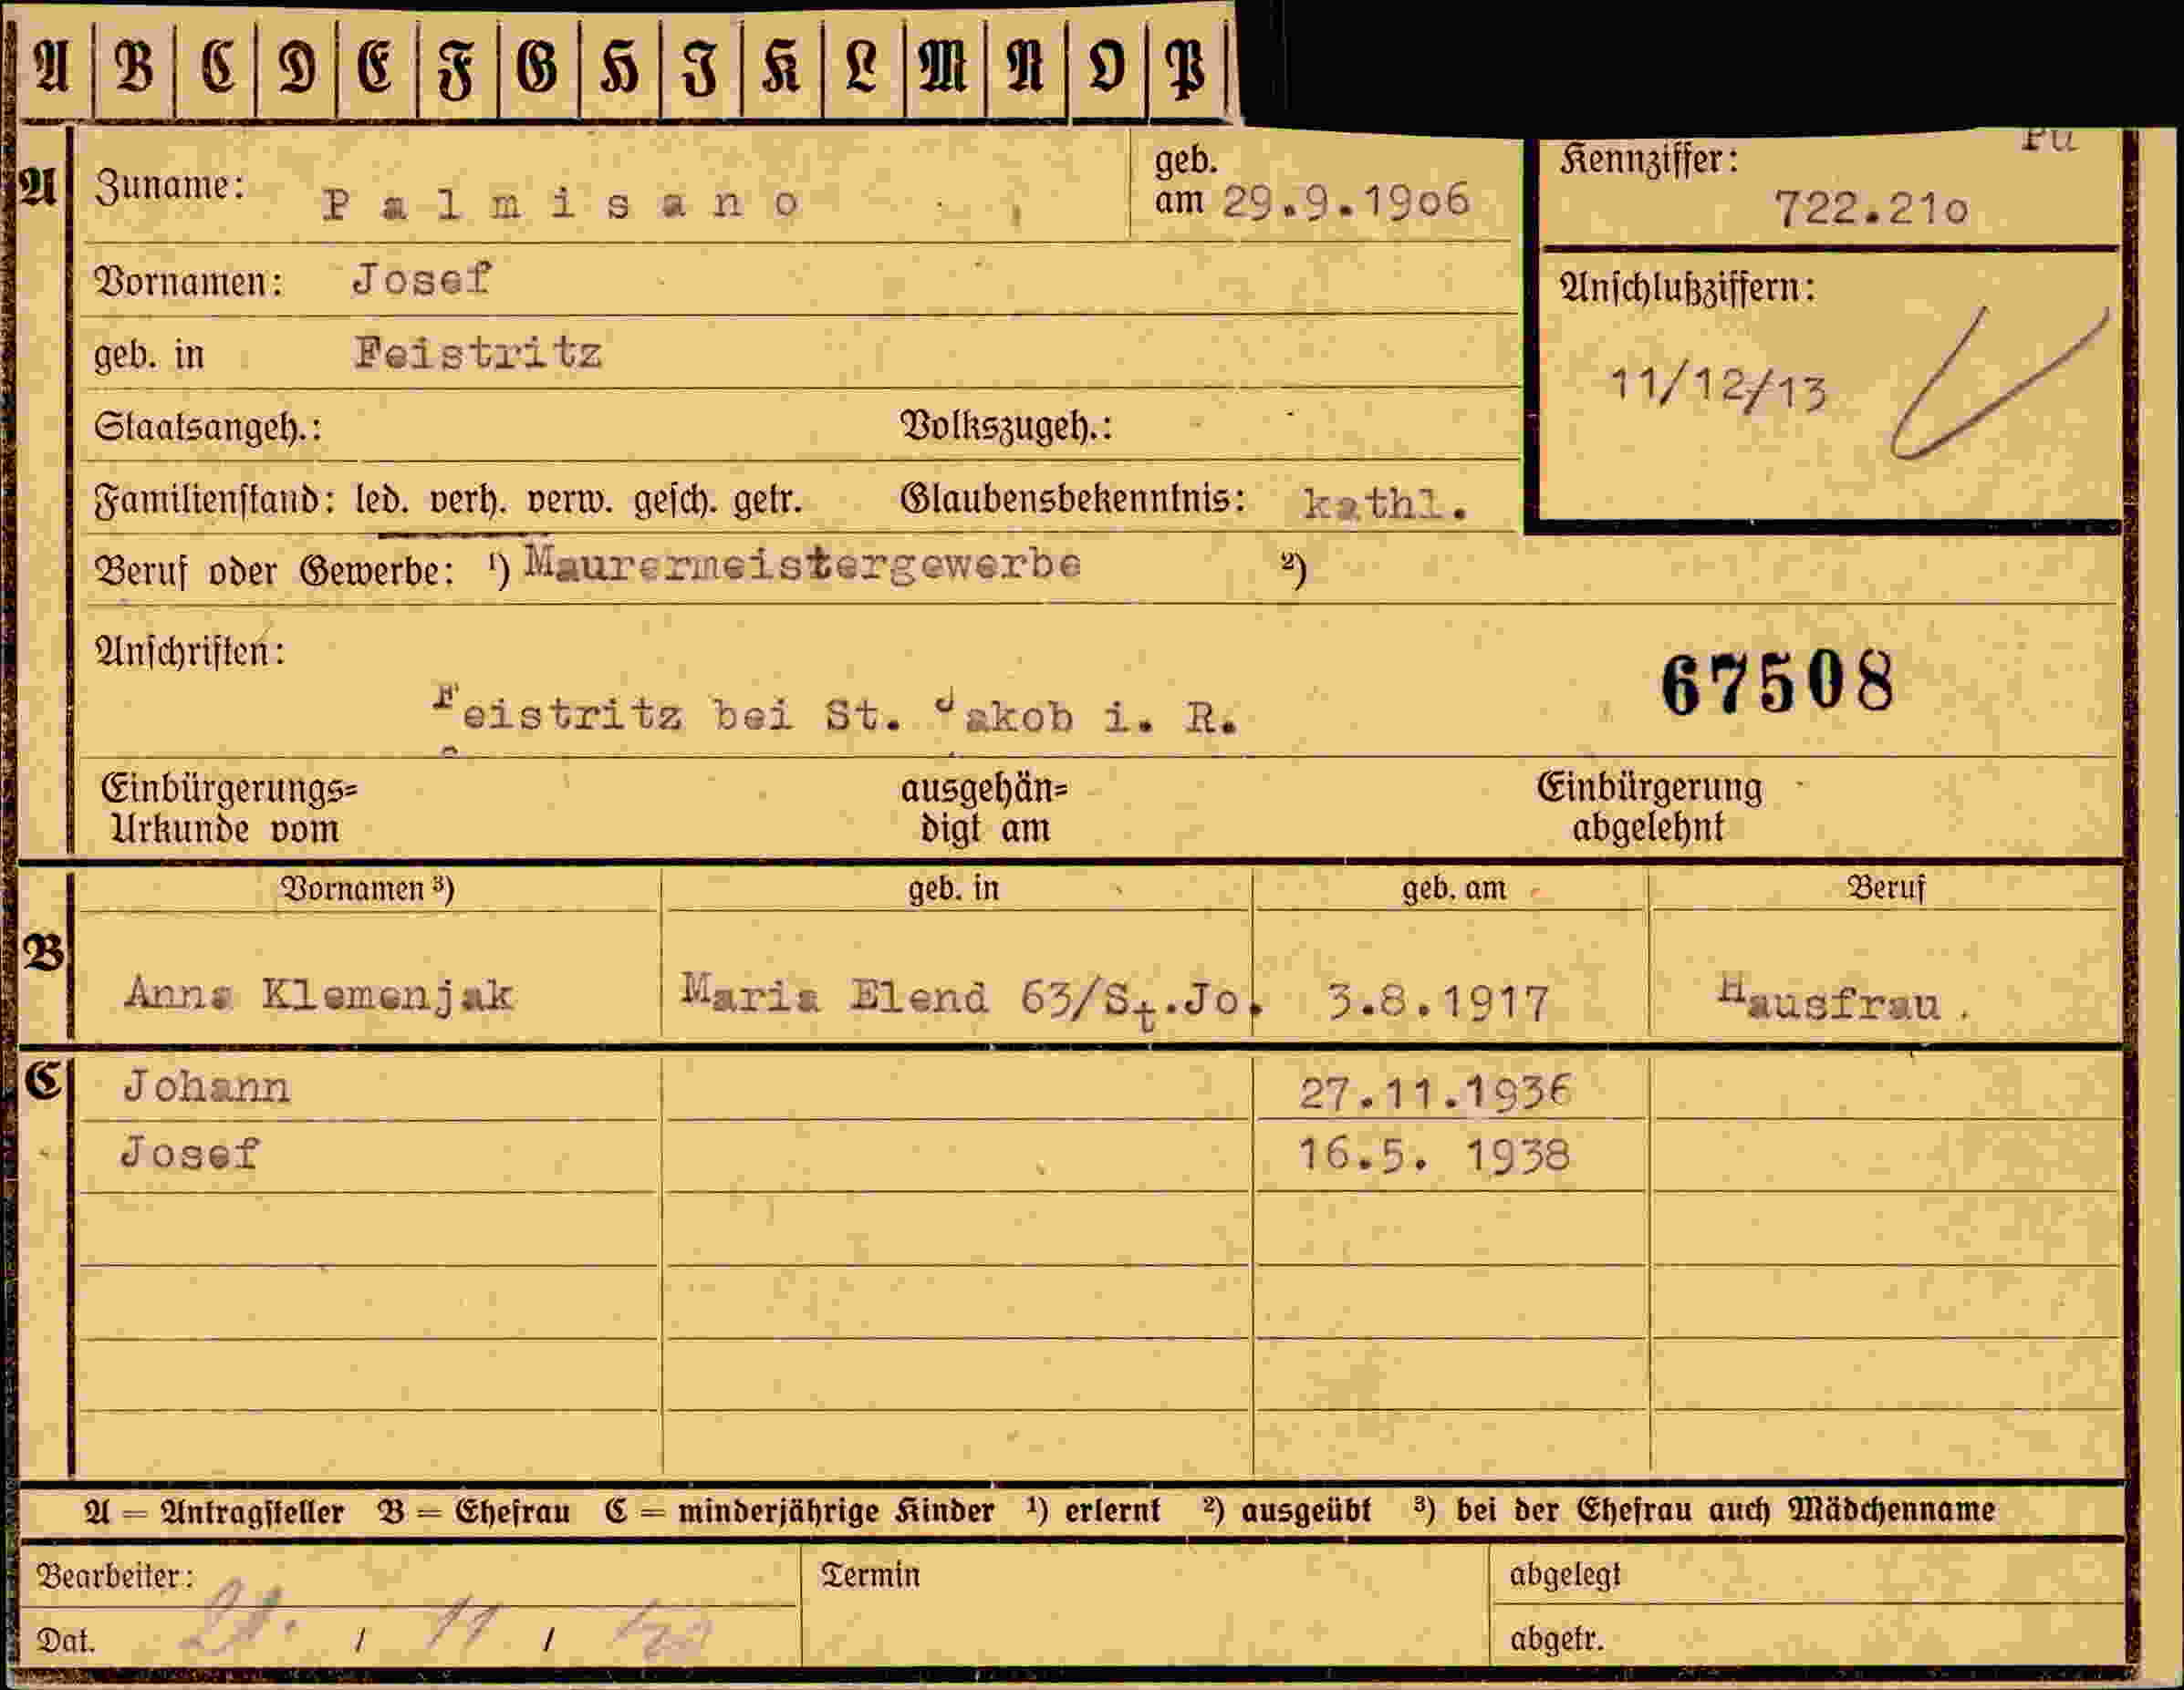 A B C D E F G H I K L M N O P
Pu
A Zuname: Palmisano geb. am 29.9.1906 Kennziffer: 722.210
Vornamen: Josef Anschlußziffern:
geb. in Feistritz 11/12/13
Staatsangeh.: Volkszugeh.:
Familienstand: led. verh. verw. gesch. getr. Glaubensbekenntnis: kathl.
Beruf oder Gewerbe: ¹) Maurermeistergewerbe ²)
Anschriften: 67508
Feistritz bei St. Jakob i. R.
Einbürgerungs= ausgehän= Einbürgerung
Urkunde vom digt am abgelehnt
Vornamen ³) geb. in geb. am Beruf
B Anna Klemenjak Maria Elend 63/St.Jo. 3.8.1917 Hausfrau.
C Johann 27.11.1936
Josef 16.5. 1938
A = Antragsteller B = Ehefrau C = minderjährige Kinder ¹) erlernt ²) ausgeübt ³) bei der Ehefrau auch Mädchenname
Bearbeiter: Termin abgelegt
Dat. / 11 / abgetr.